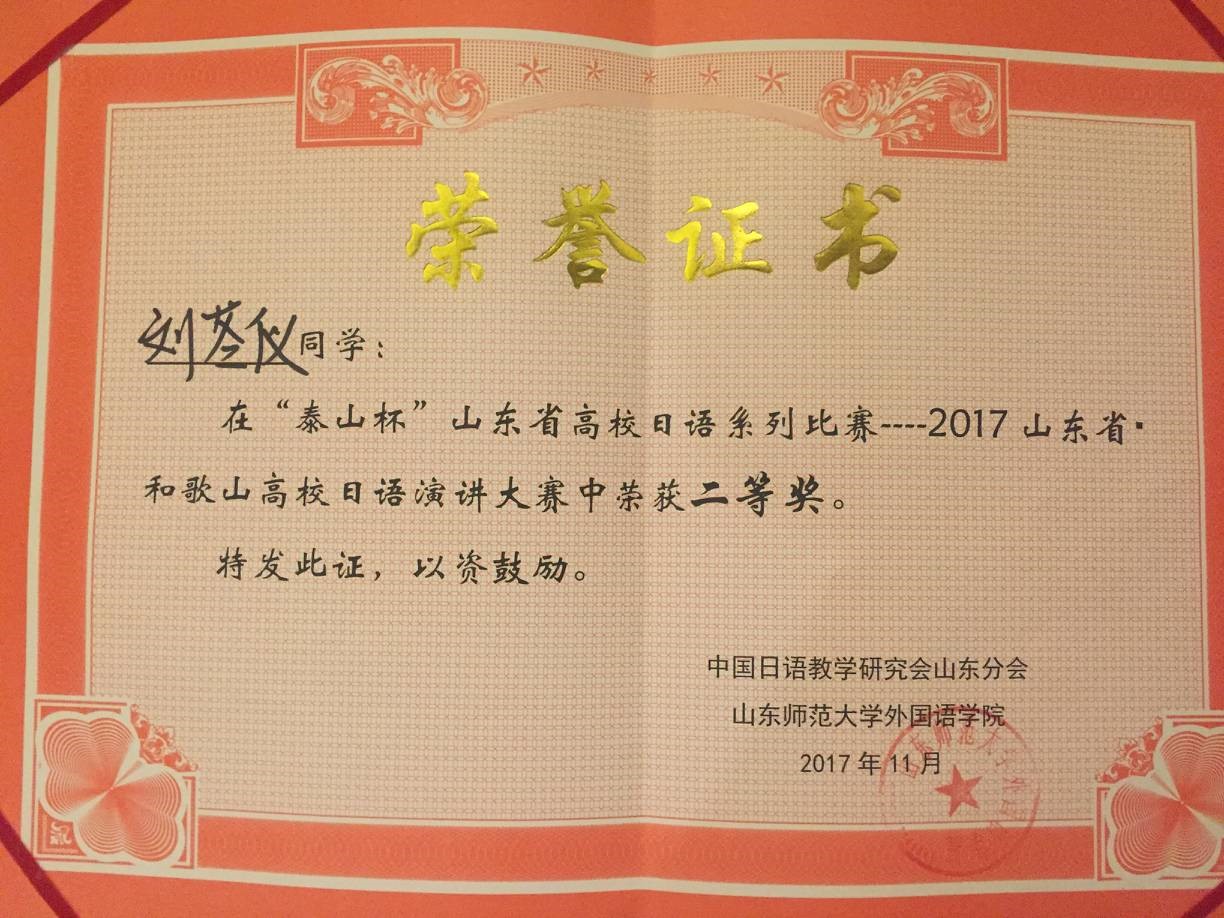 荣誉证书
刘荟仪同学：
在“泰山杯”山东省高校日语系列比赛----2017 山东省·
和歌山高校日语演讲大赛中荣获二等奖。
特发此证，以资鼓励。
中国日语教学研究会山东分会
山东师范大学外国语学院
2017 年 11 月